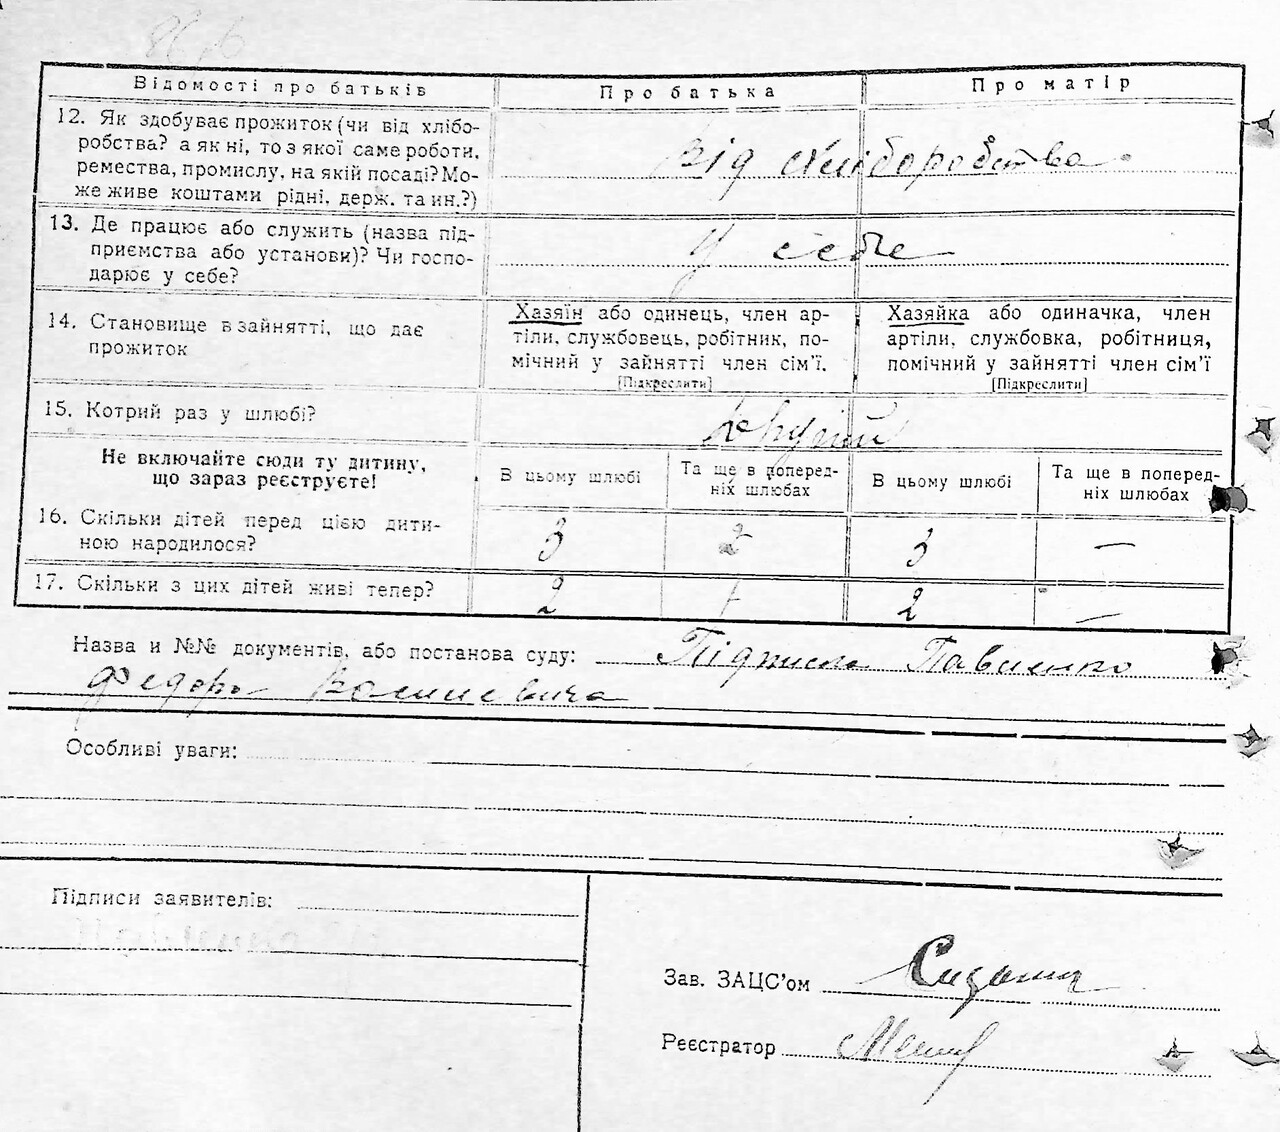 Відомості про батьків
Про батька
Про матір
12. Як здобуває прожиток (чи від хлібо-
робства? а як ні, то з якої саме роботи,
ремества, промислу, на якій посаді? Мо-
же живе коштами рідні, держ. та ин.?)
Від хліборобства
13. Де працює або служить (назва під-
приємства або установи)? Чи госпо-
дарює у себе?
У себе
14. Становище в зайнятті, що дає
прожиток
Хазяїн або одинець, член ар-
тіли, службовець, робітник, по-
мічний у зайнятті член сім'ї.
[Підкреслити]
Хазяйка або одиначка, член
артіли, службовка, робітниця,
помічний у зайнятті член сім'ї
[Підкреслити]
15. Котрий раз у шлюбі?
Другий
Не включайте сюди ту дитину,
що зараз реєструєте!
В цьому шлюбі
Та ще в поперед-
ніх шлюбах
В цьому шлюбі
Та ще в поперед-
ніх шлюбах
16. Скільки дітей перед цією дити-
ною народилося?
3
2
3
—
17. Скільки з цих дітей живі тепер?
2
1
2
—
Назва и №№ документів, або постанова суду: Підписка Павленко
Федора
Особливі уваги:
Підписи заявителів:
Зав. ЗАЦС'ом
Реєстратор